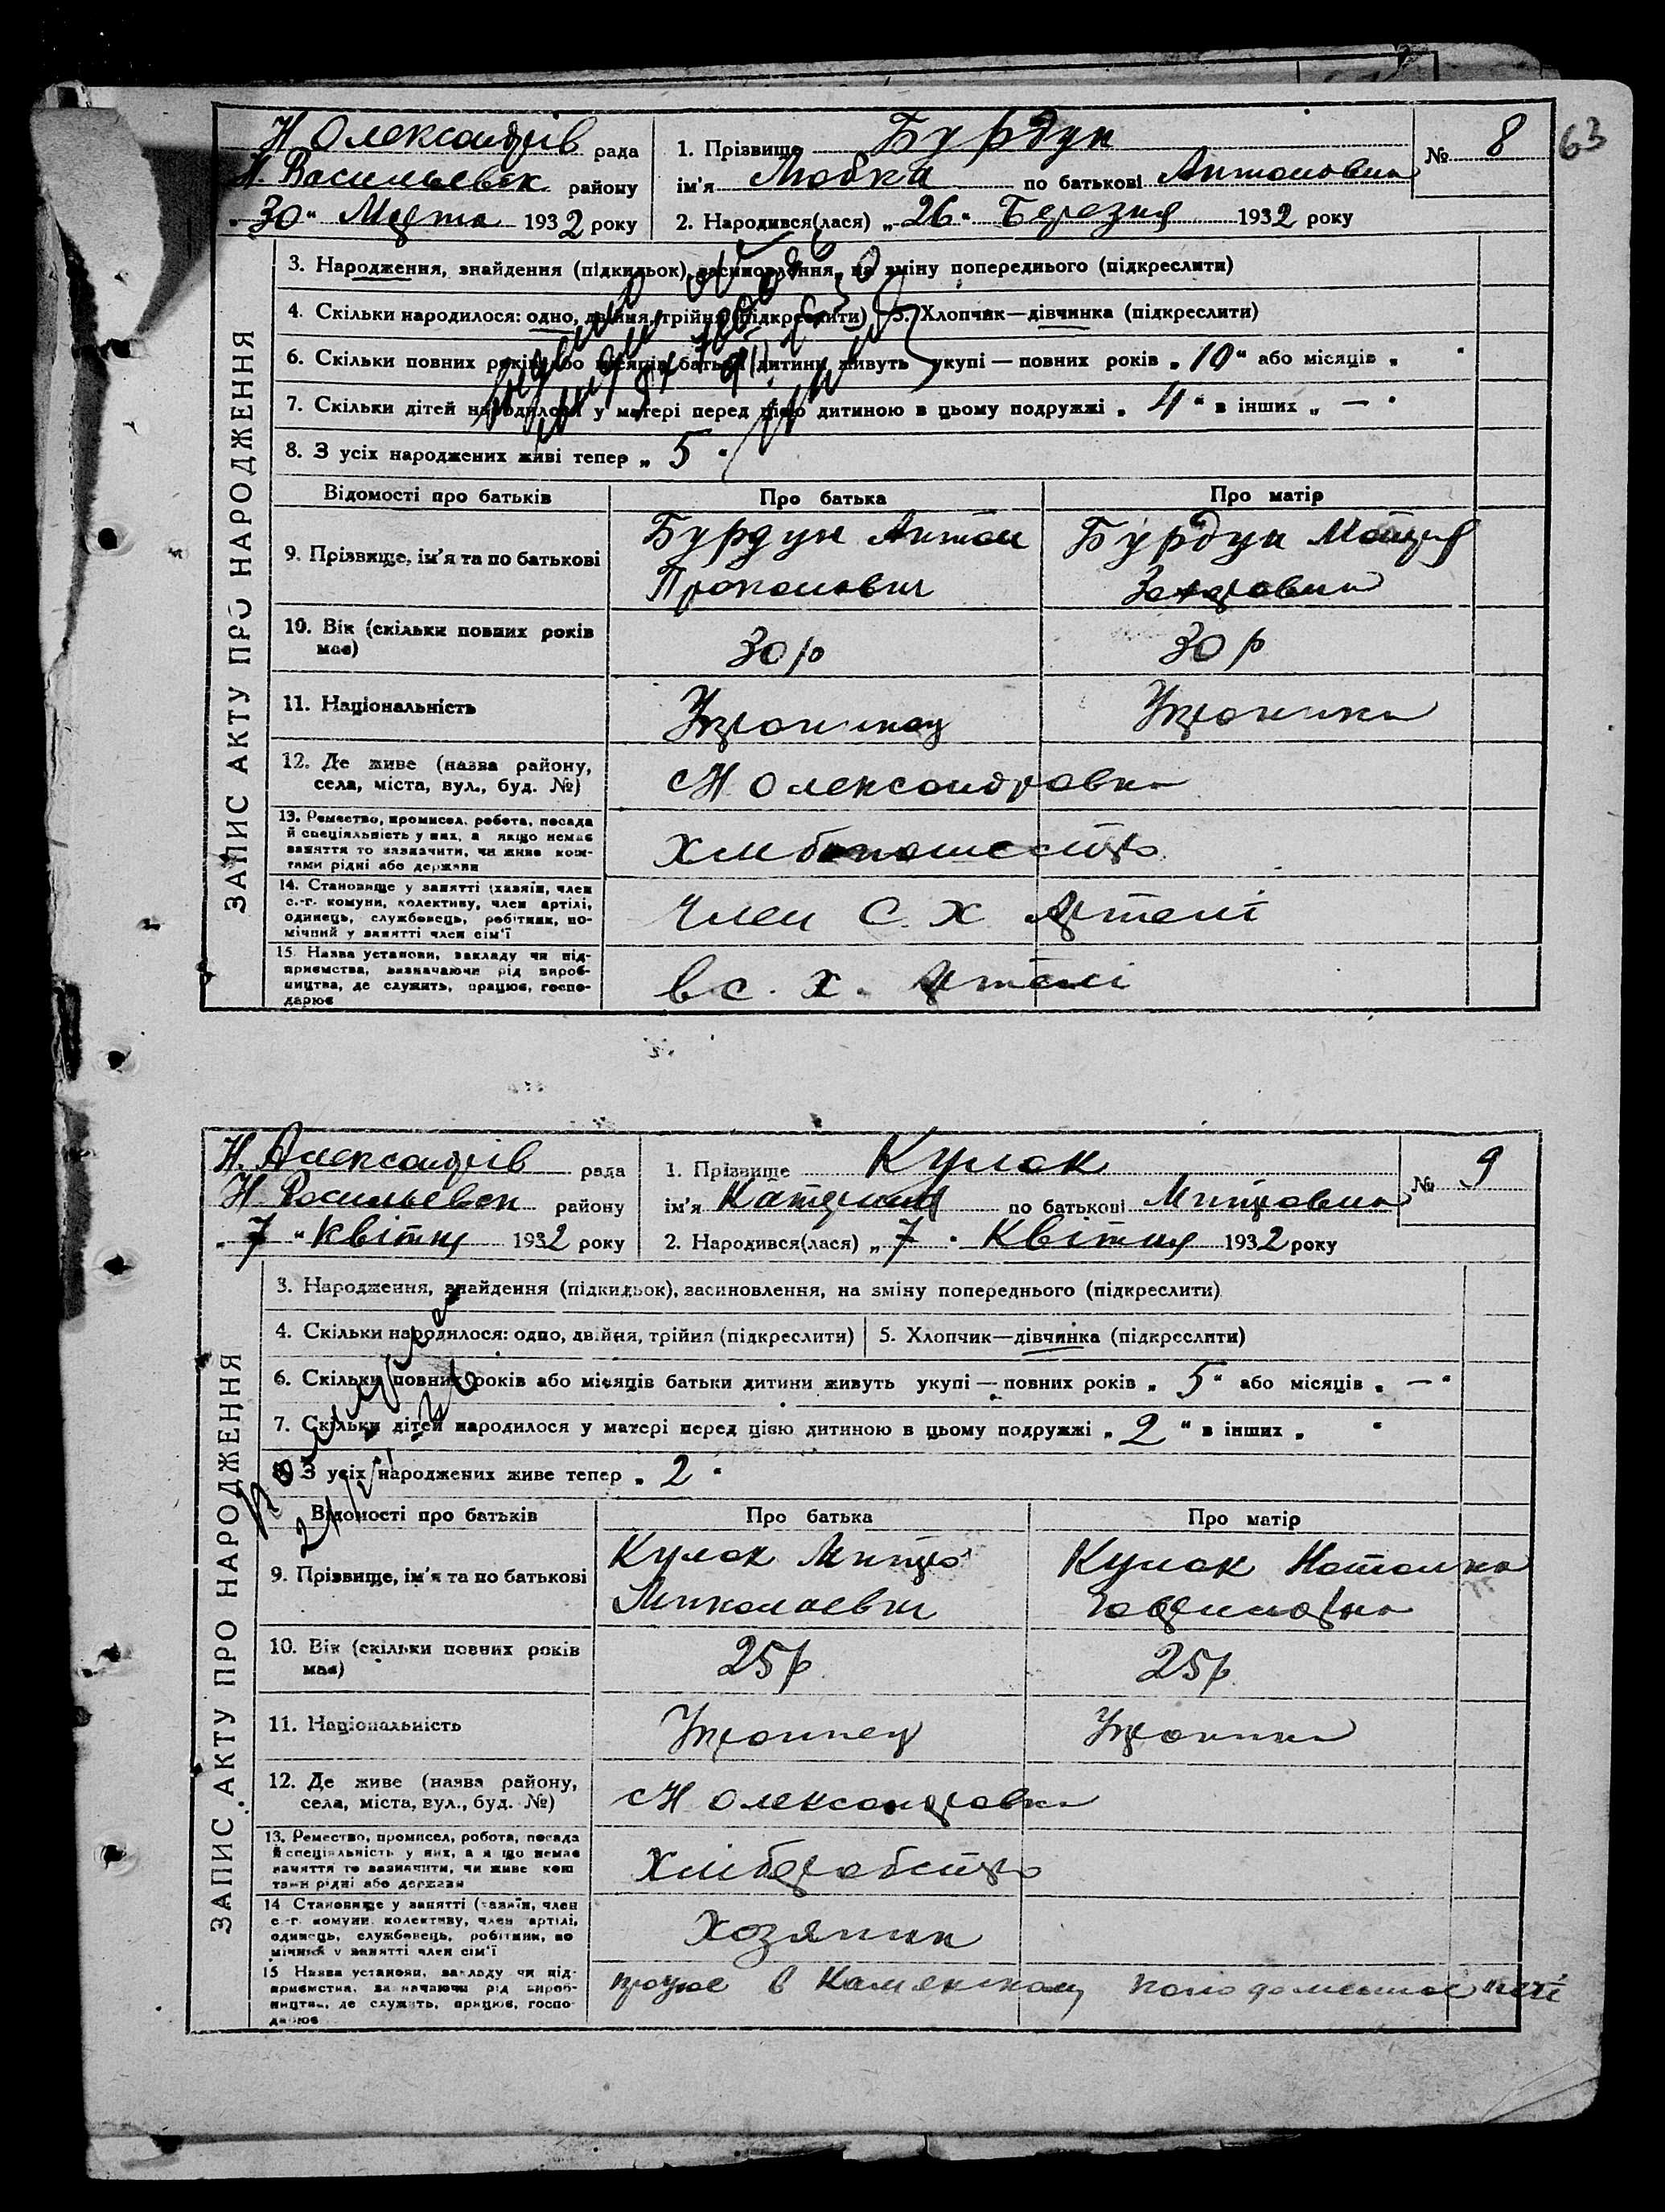 63
Н Олександрів рада
Н. Васильевск району
„30“ Марта 1932 року
1. Прізвище Бурдун
ім'я Любка по батькові Антоновна
№ 8
2. Народився(лася) „26“ Березня 1932 року
ЗАПИС АКТУ ПРО НАРОДЖЕННЯ
3. Народження, знайдення (підкидьок), засиновлення, на зміну попереднього (підкреслити)
4. Скільки народилося: одно, двійня, трійня (підкреслити) 5. Хлопчик—дівчинка (підкреслити)
6. Скільки повних років або місяців батьки дитини живуть укупі — повних років „10“ або місяців „ “
7. Скільки дітей народилося у матері перед цією дитиною в цьому подружжі „4“ в інших „—“
8. З усіх народжених живі тепер „5“
Відомості про батьків Про батька Про матір
9. Прізвище, ім'я та по батькові
Бурдун Антон
Прокопович
Бурдун Мотря
Захаровна
10. Вік (скільки повних років
має)
30 р
30 р
11. Національність
Українець
Українка
12. Де живе (назва району,
села, міста, вул., буд. №)
с Н Олександровка
13. Ремество, промисел, робота, посада
й спеціяльність у них, а якщо немає
заняття то зазначити, чи живе кош-
тами рідні або держави
14. Становище у занятті (хазяїн, член
с.-г. комуни, колективу, член артілі,
одинець, службовець, робітник, по-
мічний у занятті член сім'ї
Член С. Х. Артелі
15. Назва установи, закладу чи під-
приємства, визначаючи рід вироб-
ництва, де служить, працює, госпо-
дарює
в с. х. Артелі
Н. Александрів рада
Н. Васильевск району
„7“ Квітня 1932 року
1. Прізвище Кулак
ім'я Катерина по батькові Митровна
№ 9
2. Народився(лася) „7“ Квітня 1932 року
ЗАПИС АКТУ ПРО НАРОДЖЕННЯ
3. Народження, знайдення (підкидьок), засиновлення, на зміну попереднього (підкреслити)
4. Скільки народилося: одно, двійня, трійня (підкреслити) 5. Хлопчик—дівчинка (підкреслити)
6. Скільки повних років або місяців батьки дитини живуть укупі — повних років „5“ або місяців „—“
7. Скільки дітей народилося у матері перед цією дитиною в цьому подружжі „2“ в інших „ “
8. З усіх народжених живе тепер „2“
Відомості про батьків Про батька Про матір
9. Прізвище, ім'я та по батькові
Кулак Митро
Миколаевич
Кулак Наталка
10. Вік (скільки повних років
має)
25 р.
25 р.
11. Національність
Українец
Українка
12. Де живе (назва району,
села, міста, вул., буд. №)
с Н Олександровка
13. Ремество, промисел, робота, посада
й спеціяльність у них, а якщо немає
заняття то зазначити, чи живе кош
тами рідні або держави
Хліборобство
14 Становище у занятті (хазяїн, член
с-г. комуни, колективу, член артілі,
одинець, службовець, робітник, по
мічний у занятті член сім'ї
Хозяин
15 Назва установи, закладу чи під-
приємства, визначаючи рід вироб-
ництва, де служить, працює, госпо-
дарює
працює в Каменском